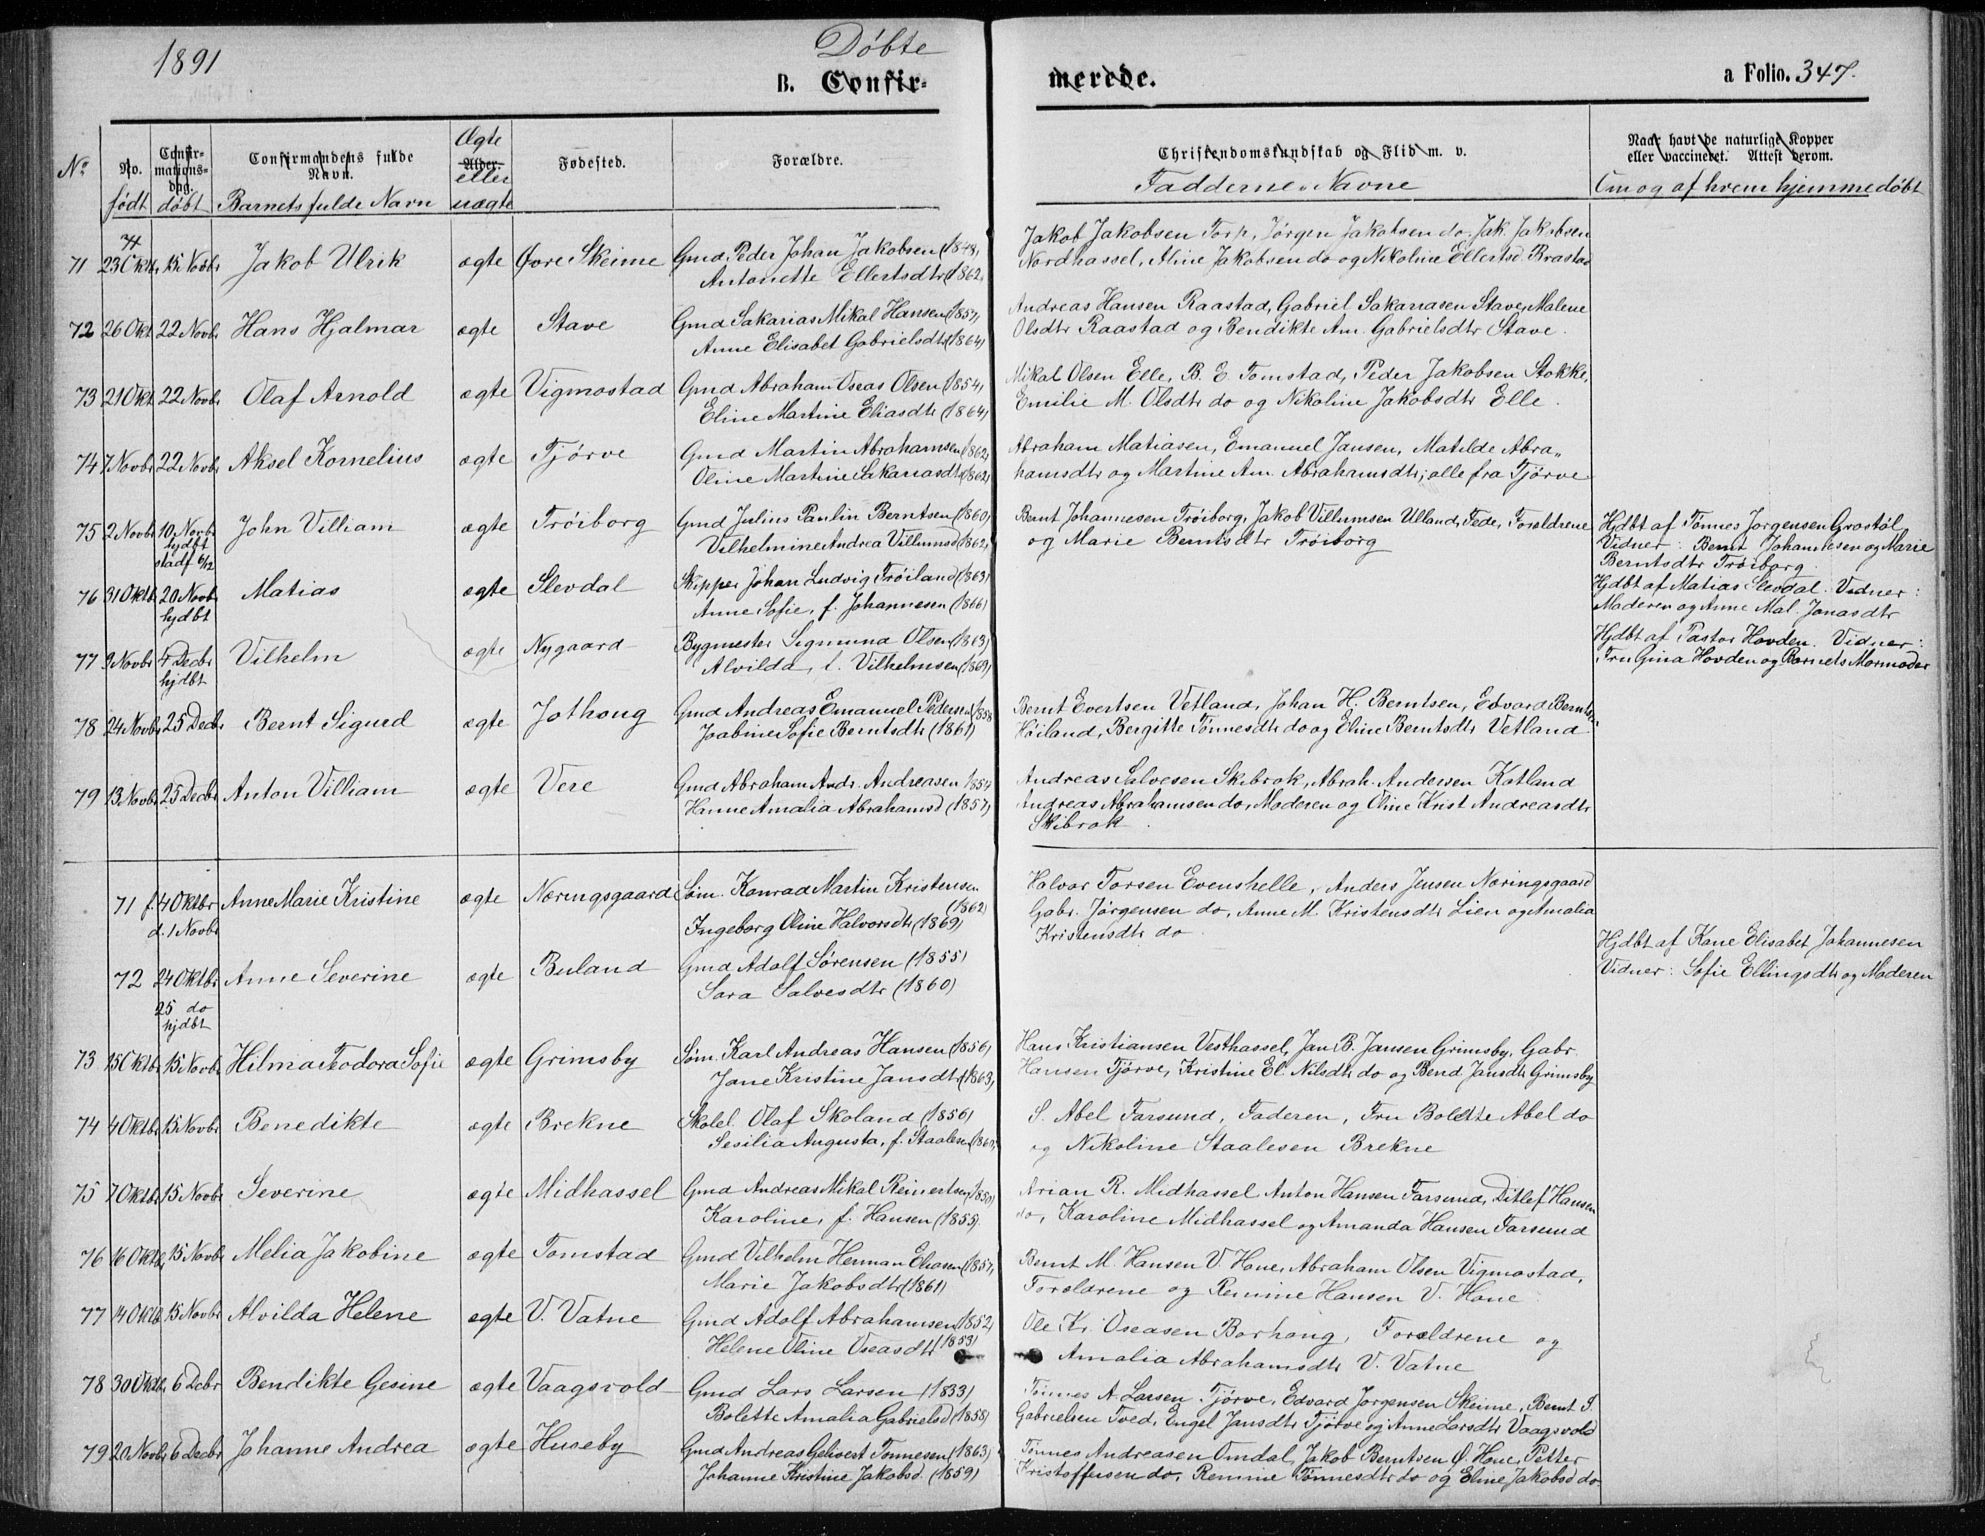 1891
Døbte
B. Confir-
merede.
a Folio. 347.
No
No.
født
Confir-
mations-
dag.
døbt
Confirmandens fulde
Navn.
Barnets fulde Navn
Ægte
Alder.
eller
uægte
Fødested.
Forældre.
Christendomskundskab og Flid m. v.
Faddernes Navne
Naar havt de naturlige Kopper
eller vaccineret. Attest derom.
Om og af hvem hjemmedøbt
71 23 Oktb 15 Novbr Jakob Ulrik ægte Øvre Skeime Gmd. Peder Johan Jakobsen (1848)
Antonette Ellertsdtr (1862)
Jakob Jakobsen Torp, Jørgen Jakobsen do, Jak. Jakobsen
Nordhassel, Aline Jakobsen do og Nikoline Ellertsd Brastad
72 26 Okt 22 Novbr Hans Hjalmar ægte Stave Gmd Sakarias Mikal Hansen (1857)
Anne Elisabet Gabrielsdtr (1864)
Andreas Hansen Raastad, Gabriel Sakariasen Stave, Malene
Olsdtr Raastad og Bendikte Am. Gabrielsdtr Stave.
73 21 Okt 22 Novbr Olaf Arnold ægte Vigmostad Gmd Abraham Oseas Olsen (1854)
Eline Martine Eliasdtr (1864)
Mikal Olsen Elle, B. E. Tomstad, Peder Jakobsen Stokke,
Emilie M. Olsdtr do og Nikoline Jakobsdtr Elle.
74 7 Novbr 22 Novbr Aksel Kornelius ægte Tjørve Gmd Martin Abrahamsen (1862)
Oline Martine Sakariasdtr (1862)
Abraham Matiasen, Emanuel Jansen, Matilde Abra„
hamsdtr og Martine Am. Abrahamsdtr, alle fra Tjørve
75 2 Novbr 10 Novbr John Villiam ægte Trøiborg Gmd Julius Paulin Berntsen (1860)
hjdbt
stadf 6/12
Vilhelmine Andrea Villumsd (1862)
Bernt Johannesen Trøiborg, Jakob Villumsen Ulland, Fede, Forældrene
og Marie Berntsdtr Trøiborg
Hjdbt af Tønnes Jørgensen Grostøl
Vidner: Bernt Johannesen og Marie
Berntsdtr Trøiborg.
76 31 Oktbr 20 Novbr Matias ægte Slevdal Skipper Johan Ludvig Trøiland (1863)
hjdbt
Anne Sofie, f. Johannesen (1866)
Hjdbt af Matias Slevdal. Vidner:
Moderen og Anne Mal. Jonasdtr
77 9 Novbr 4 Decbr Vilhelm ægte Nygaard Bygmester Sigmund Olsen (1863)
hjdbt
Alvilda, f. Vilhelmsen (1869)
Hjdbt af Pastor Hovden. Vidner:
Fru Gina Hovden og Barnets Mormoder
78 24 Novbr 25 Decbr Bernt Sigurd ægte Jothoug Gmd Andreas Emanuel Pedersen 1858
Jaabine Sofie Berntsdtr (1861)
Bernt Evertsen Vetland, Johan H. Berntsen, Edvard Berntsen
Høiland, Bergitte Tønnesdtr do og Eline Berntsdtr Vetland
79 13 Novbr 25 Decbr Anton Villiam ægte Vere Gmd Abraham Andr. Andreasen 1854
Hanne Amalia Abrahamsd (1857)
Andreas Salvesen Skibrok, Abrah. Andersen Katland
Andreas Abrahamsen do, Moderen og Oline Krist Andreasdtr
Skibrok.
71 f. 4 Oktbr Anne Marie Kristine ægte Neringsgaard Søm. Konrad Martin Kristensen
d. 1 Novbr
(1862)
Ingeborg Oline Halvorsdtr (1869)
Halvor Torsen Evenshelle, Anders Jensen Næringsgaard
Gabr. Jørgensen do, Anne M. Kristensdtr Lien og Amalia
Kristensdtr do
72 24 Oktbr Anne Severine ægte Buland Gmd Adolf Sørensen (1855)
25 do
hjdbt
Sara Salvesdtr (1860)
Hjdbt af Kone Elisabet Johannesen
Vidner: Sofie Ellingsdtr og Moderen
73 15 Oktbr 15 Novbr Hilma Teodora Sofie ægte Grimsby Søm. Karl Andreas Hansen (1856)
Jane Kristine Jansdtr (1863)
Hans Kristiansen Vesthassel, Jan B. Jansen Grimsby, Gabr.
Hansen Tjørve, Kristine El. Nilsdtr do og Bend Jansdtr Grimsby
74 4 Oktbr 15 Novbr Benedikte ægte Brekne Skolel. Olaf Skoland (1856)
Sesilia Augusta, f. Staalesen
S. Abel Farsund, Faderen, Fru Bolette Abel do
og Nikoline Staalesen Brekne
75 7 Oktbr 15 Novbr Severine ægte Midhassel Gmd Andreas Mikal Reinertsen
Karoline, f. Hansen (1855)
Arian R. Midhassel Anton Hansen Farsund, Ditlef Hansen
do, Karoline Midhassel og Amanda Hansen Farsund
76 16 Oktb 15 Novbr Melia Jakobine ægte Tomstad Gmd Vilhelm Herman Eliasen (1857)
Marie Jakobsdtr (1861)
Bernt M. Hansen V. Hone, Abraham Olsen Vigmostad,
Forældrene og Remine Hansen V. Hone
77 14 Oktb 15 Novbr Alvilda Helene ægte V. Vatne Gmd Adolf Abrahamsen 1852
Helene Oline Oseasdtr 1853)
Ole Kr. Oseasen Borhoug, Forældrene og
Amalia Abrahamsdtr V. Vatne
78 30 Oktb 6 Decbr Bendikte Gesine ægte Vaagsvold Gmd Lars Larsen (1833)
Bolette Amalia Gabrielsd (1858)
Tønnes A. Larsen Tjørve, Edvard Jørgensen Skeime, Bernt S.
Gabrielsen Tved, Engel Jansdtr Tjørve og Anne Larsdtr Vaagsvold
79 20 Novbr 6 Decbr Johanne Andrea ægte Huseby Gmd Andreas Gelivest Tønnesen (1863)
Johanne Kristine Jakobsd. (1859)
Tønnes Andreasen Omdal, Jakob Berntsen Ø. Hone, Petter
Kristoffersen do, Remine Tønnesdtr do og Eline Jakobsd do